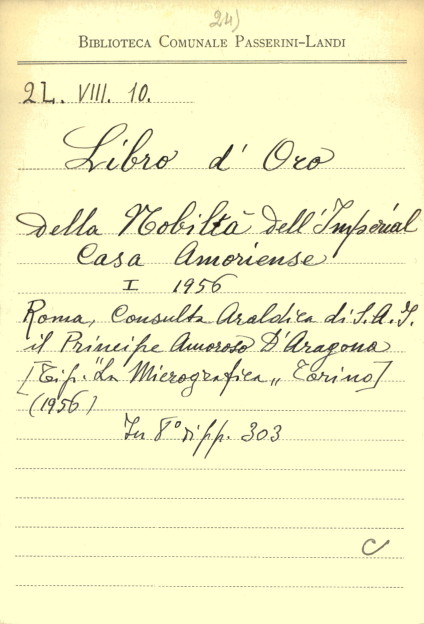 24)
BIBLIOTECA COMUNALE PASSERINI-LANDI
2L. VIII. 10.
Libro d' Oro
della Nobiltà dell'Imperial
Casa Amoriense
I 1956
Roma, Consulta Araldica di S. A. I.
il Principe Amoroso D'Aragona
[Tip. "La Micrografica" Torino]
(1956)
In 8° di pp. 303
C